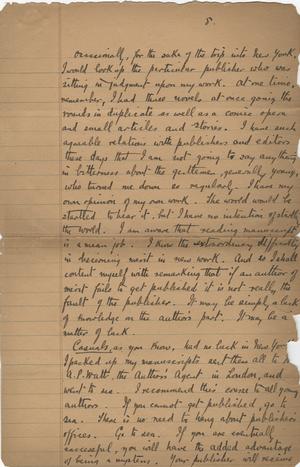 5.
Occasionally, for the sake of the trip into New York,
I would look up the particular publisher who was
sitting in judgment upon my work. At one time,
remember, I had three novels at once going the
rounds in duplicate as well as a comic opera
and small articles and stories. I have such
agreeable relations with publishers and editors
these days that I am not going to say anything
in bitterness about the gentlemen, generally young,
who turned me down so regularly. I have my
own opinion of my own work. The world would be
startled to hear it, but I have no intention of
the world. I am aware that reading manuscript
is a mean job. I know the extraordinary difficulty
in becoming most in new work. And so I shall
content myself with remarking that if an author of
merit fails to get published it is not really the
fault of the publisher. It may be simply a lack
of knowledge on the author's part. It may be a
matter of luck.
Casuals, as you know, had no luck in New York.
I packed up my manuscripts sent them all to
A.P. Watt, the Author's Agent in London, and
went to sea. I recommend this course to all young
authors. If you cannot get published, go to
sea. There is no need to hang about publisher's
offices. Go to sea. If you are eventually
successful, you will have the added advantage
of being a mystery. Your publisher will receive